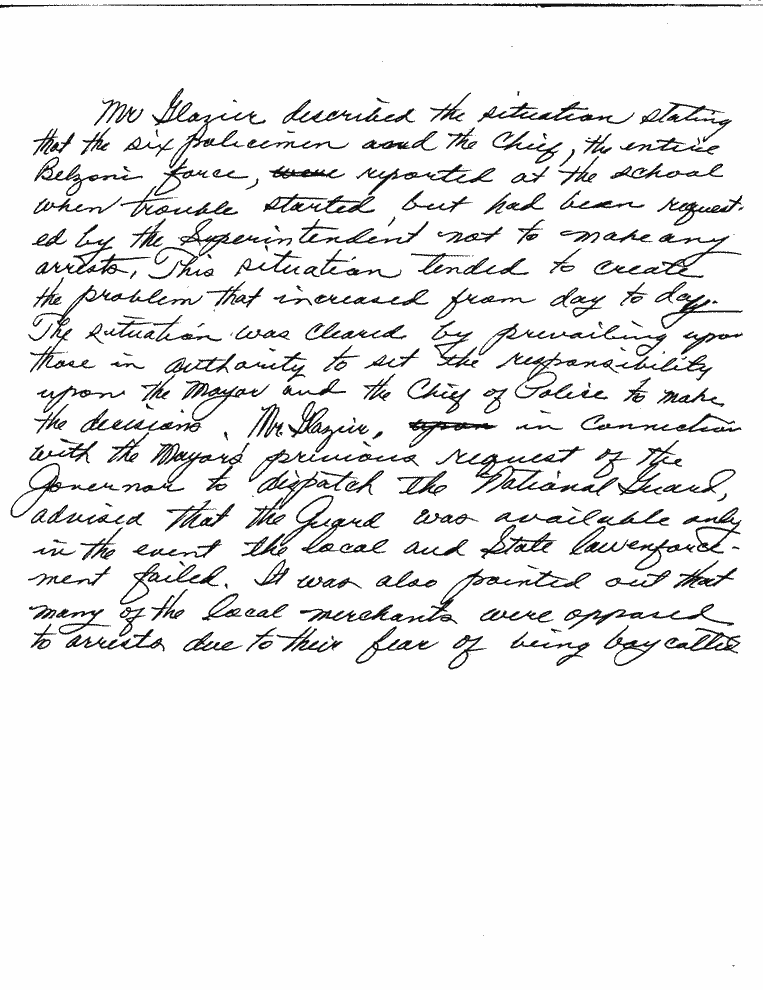 Mr Glazier described the situation stating
that the six policemen and the Chief, the entire
Belzoni force, were reported at the school
when trouble started, but had been request-
ed by the Superintendent not to make any
arrests. This situation tended to create
the problem that increased from day to day.
The situation was cleared by prevailing upon
those in authority to set the responsibility
upon the Mayor and the Chief of Police to make
the decisions. Mr. Glazier, upon in connection
with the Mayor's previous request of the
Governor to dispatch the National Guard,
advised that the Guard was available only
in the event the local and State lawenforce-
ment failed. It was also pointed out that
many of the local merchants were opposed
to arrests due to their fear of being boycotted